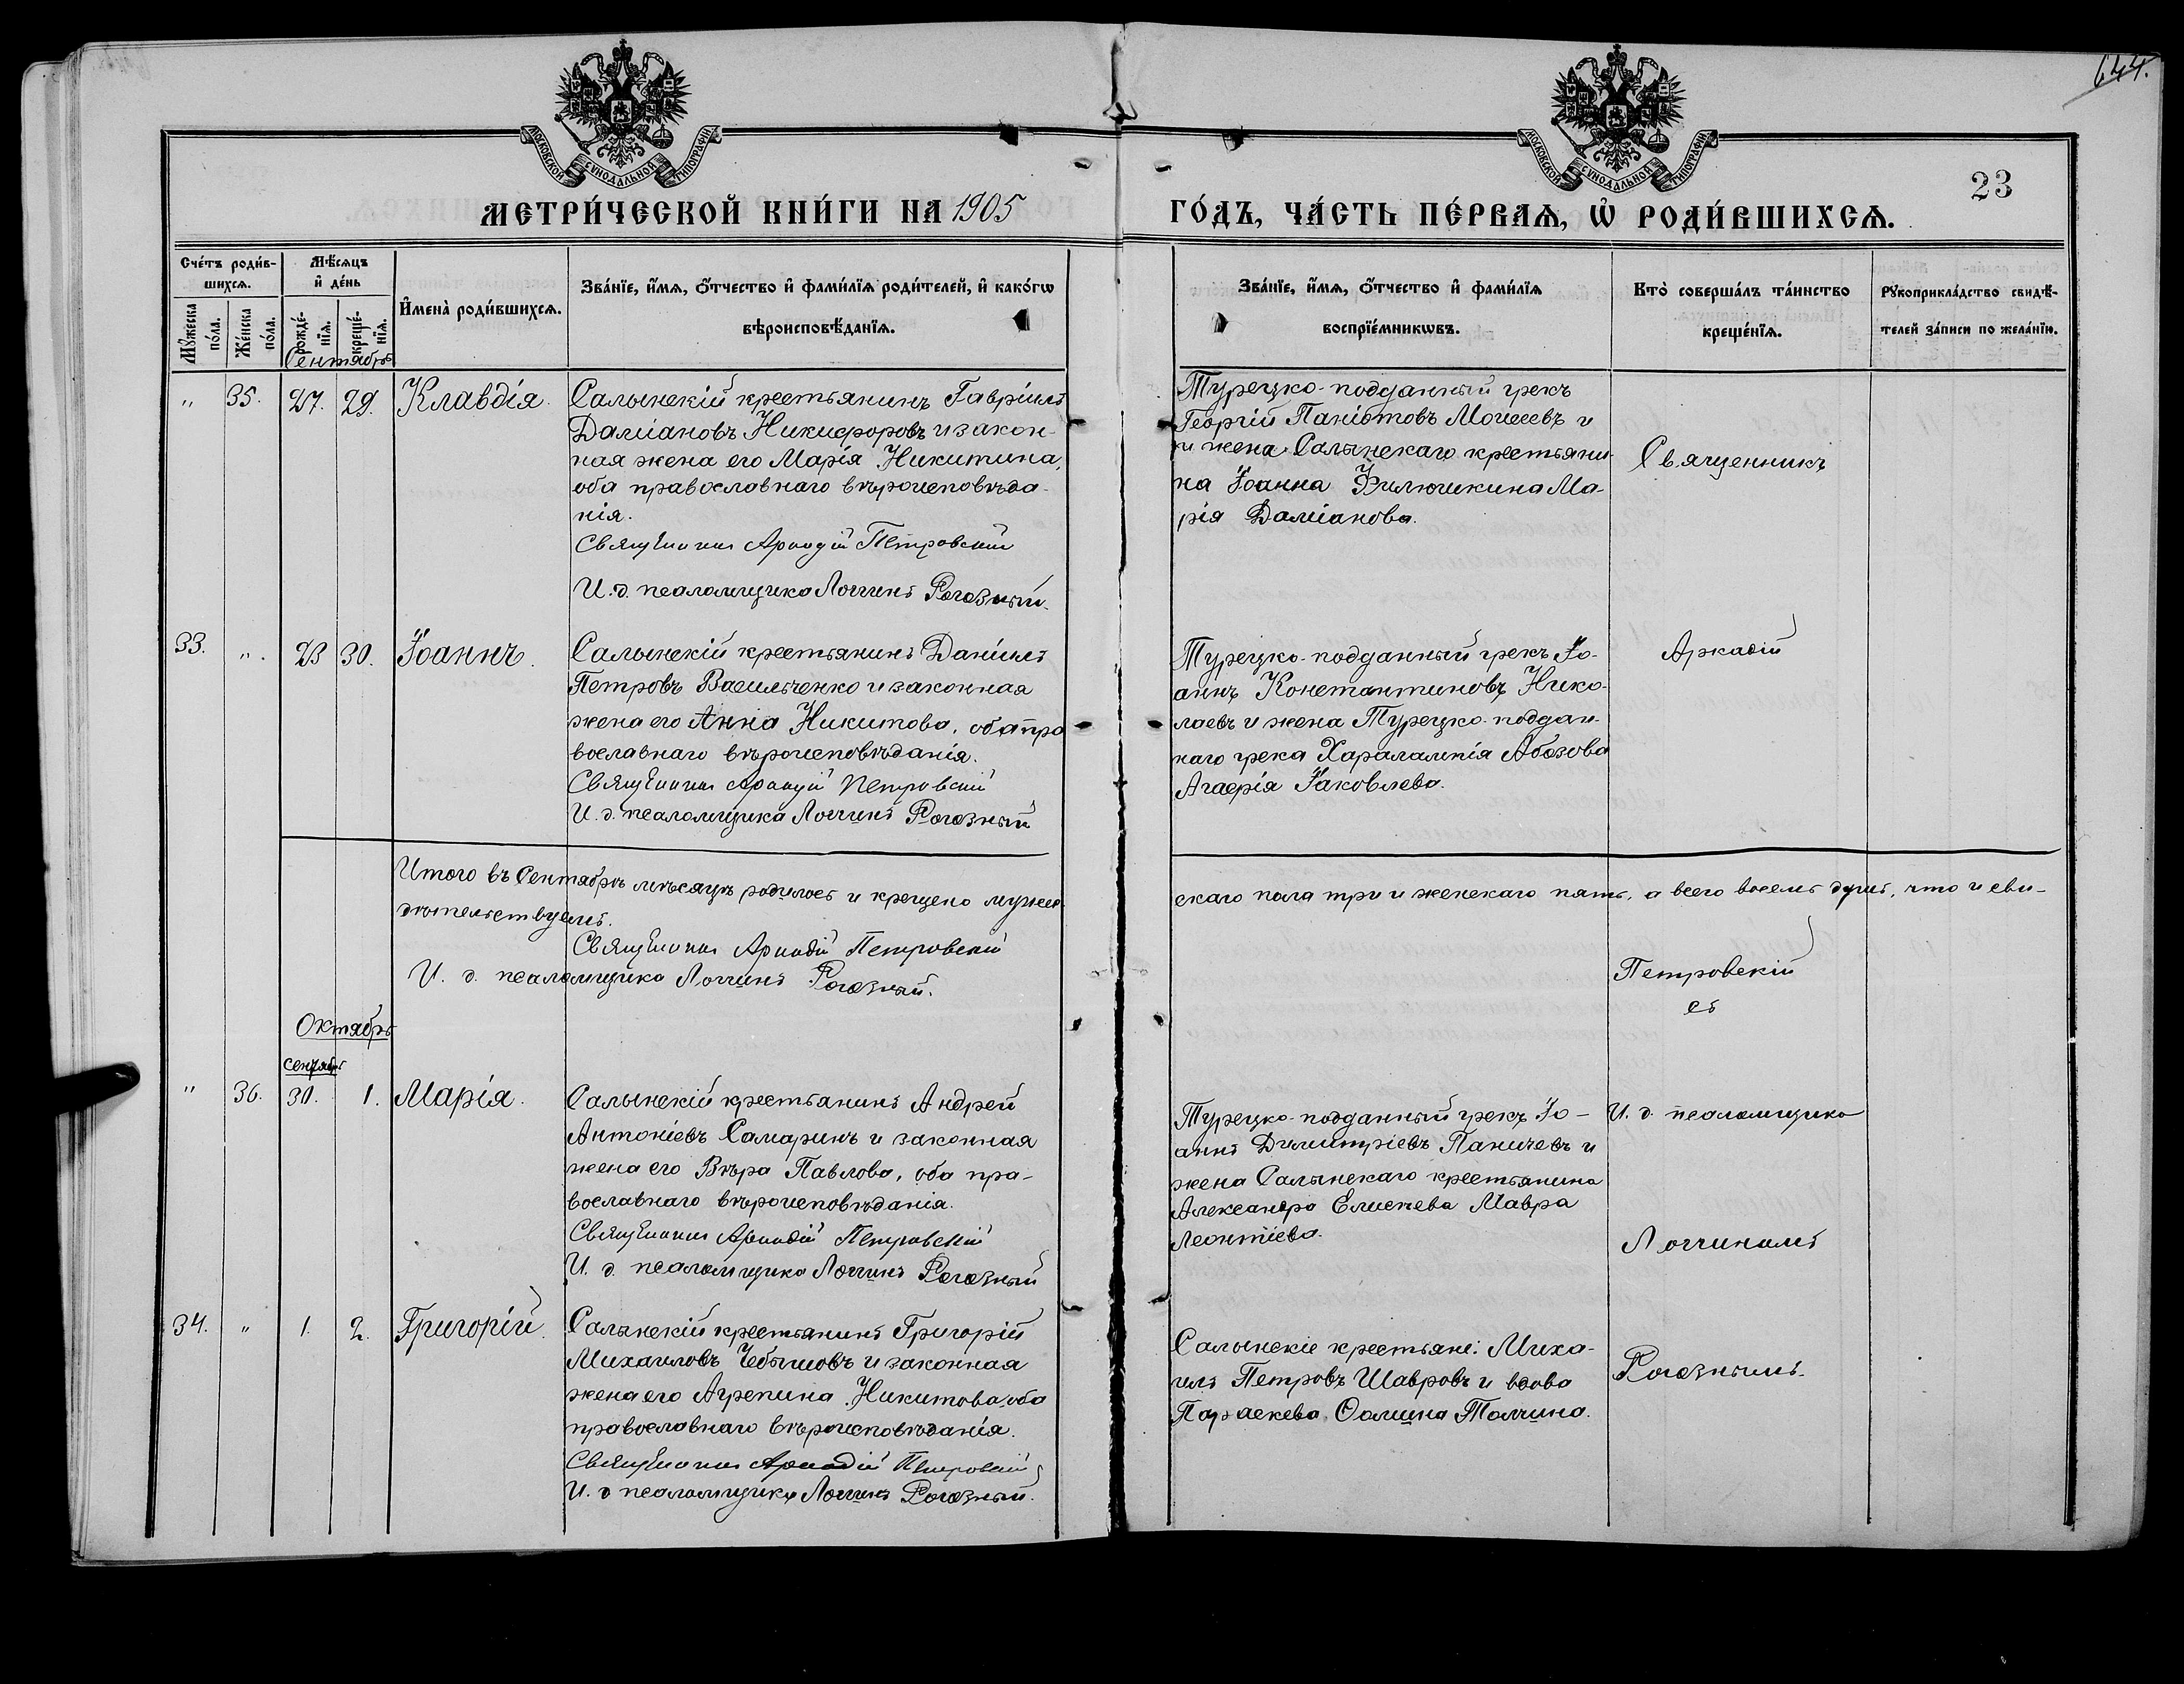 644.
МОСКОВСКОЙ СѴНОДАЛЬНОЙ ТИПОГРАФІИ
МОСКОВСКОЙ СѴНОДАЛЬНОЙ ТИПОГРАФІИ
23
МЕТРИ́ЧЕСКОЙ КНИ́ГИ НА 1905
ГО́ДЪ, ЧА́СТЬ ПЕ́РВАѦ, Ѡ҆ РОДИ́ВШИХСѦ.
Сче́тъ роди́в-
шихсѧ.
Мꙋ́жеска по́ла.
Же́нска по́ла.
Мѣ́сѧцъ
и҆ де́нь
рожде́-нїѧ.
креще́-нїѧ.
И҆мена̀ роди́вшихсѧ.
Зва́нїе, и҆́мѧ, ѻ҆́тчество и҆ фами́лїѧ роди́телей, и҆ како́гѡ
вѣроисповѣ́данїѧ.
Зва́нїе, и҆́мѧ, ѻ҆́тчество и҆ фами́лїѧ
воспрїе́мникѡвъ.
Кто̀ соверша́лъ та́инство
креще́нїѧ.
Рꙋкоприкла́дство свидѣ́-
телей за́писи по жела́нїю.
Сентябрь
" 35. 27. 29. Клавдія.
Салынскій крестьянинъ Гавріилъ
Даміановъ Никифоровъ и закон-
ная жена его Марія Никитина,
оба православнаго вѣроисповѣда-
нія.
Священникъ Аркадій Петровскій
И. д. псаломщика Логгинъ Рогозный.
Турецко-подданный грекъ
Георгій Панiотовъ Моисеевъ и
жена Салынскаго крестьяни-
на Іоанна Филюшкина Ма-
рія Даміанова.
Священникъ
33. " 23 30. Іоаннъ.
Салынскій крестьянинъ Даніилъ
Петровъ Васильченко и законная
жена его Анна Никитова, оба пра
вославнаго вѣроисповѣданія.
Священникъ Аркадій Петровскій
И. д. псаломщика Логгинъ Рогозный
Турецко-подданный грекъ Іо-
аннъ Константиновъ Нико-
лаевъ и жена Турецко-поддан-
наго грека Харалампія Абозова
Агаерія Іаковлева.
Аркадій
Итого въ Сентябрѣ мѣсяцѣ родилось и крещено мужес-
скаго пола три и женскаго пять, а всего восемь душъ, что и сви-
дѣтельствуемъ.
Священникъ Аркадій Петровскій
И. д. псаломщика Логгинъ Рогозный.
Петровскій
съ
Октябрь
сентябрь
" 36. 30. 1. Марія.
Салынскій крестьянинъ Андрей
Антоніевъ Самаринъ и законная
жена его Вѣра Павлова, оба пра-
вославнаго вѣроисповѣданія.
Священникъ Аркадій Петровскій
И. д. псаломщика Логгинъ Рогозный
Турецко-подданный грекъ Іо-
аннъ Димитріевъ Паничевъ и
жена Салынскаго крестьянина
Александра Елисѣева Мавра
Леонтіева.
И. д. псаломщика
Логгиномъ
34. " 1. 2. Григорій.
Салынскій крестьянинъ Григорій
Михаиловъ Чебышовъ и законная
жена его Агрепина Никитова, оба
православнаго вѣроисповѣданія.
Священникъ Аркадій Петровскій
И. д. псаломщика Логгинъ Рогозный.
Салынскіе крестьяне: Миха-
илъ Петровъ Шавровъ и вдова
Параскева Ѳомина Толчина.
Рогознымъ.